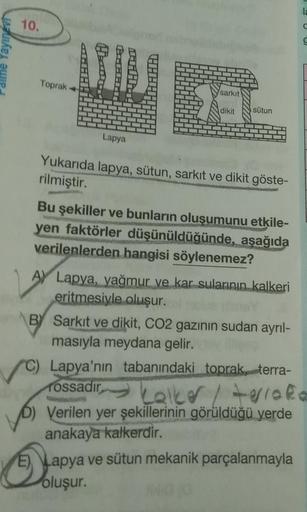 Palme Yayınevi
10.
Toprak
sarkıt
dikit
sütun
Lapya
Yukarıda lapya, sütun, sarkıt ve dikit göste-
rilmiştir.
Bu şekiller ve bunların oluşumunu etkile-
yen faktörler düşünüldüğünde, aşağıda
verilenlerden hangisi söylenemez?
A) Lapya, yağmur ve kar sularının kalkeri
eritmesiyle oluşur.
B) Sarkıt ve dikit, CO2 gazının sudan ayrıl-
masıyla meydana gelir.
C) Lapya'nın tabanındaki toprak, terra-
rossadır.
kalker /
D) Verilen yer şekillerinin görüldüğü yerde
anakaya kalkerdir.
E) Lapya ve sütun mekanik parçalanmayla
oluşur.